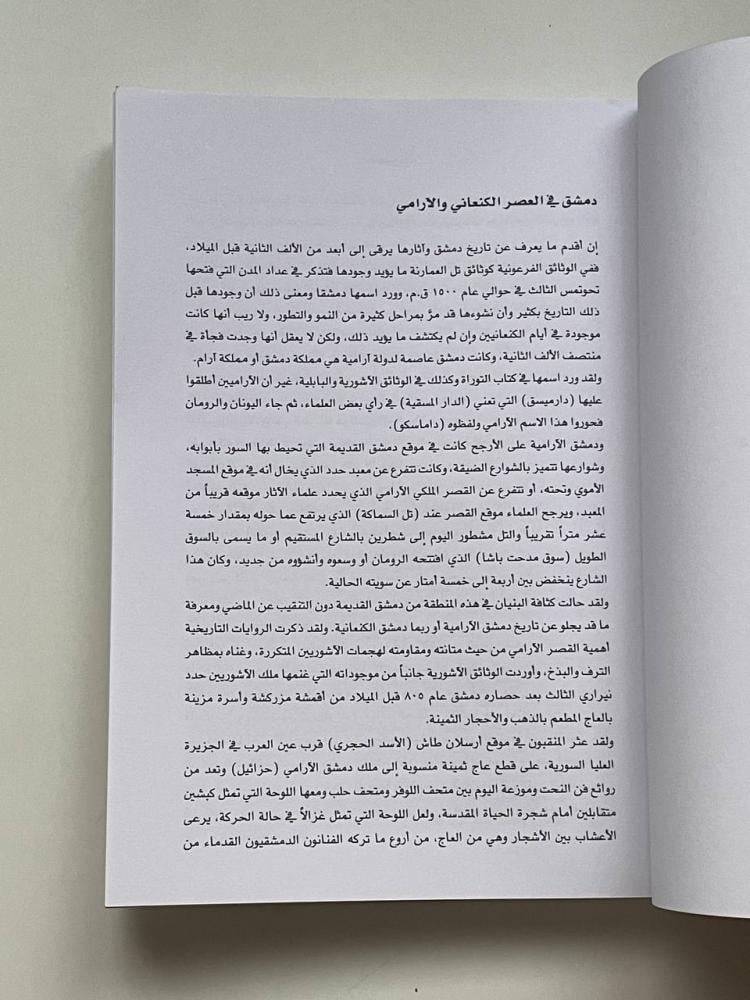 دمشق في العصر الكنعاني والآرامي
إن أقدم ما يعرف عن تاريخ دمشق وآثارها يرقى إلى أبعد من الألف الثانية قبل الميلاد،
ففي الوثائق الفرعونية كوثائق تل العمارنة ما يؤيد وجودها فتذكر في عداد المدن التي فتحها
تحوتمس الثالث في حوالي عام ١٥٠٠ ق.م، وورد اسمها دمشقا ومعنى ذلك أن وجودها قبل
ذلك التاريخ بكثير وأن نشوءها قد مرَّ بمراحل كثيرة من النمو والتطور، ولا ريب أنها كانت
موجودة في أيام الكنعانيين وإن لم يكتشف ما يؤيد ذلك، ولكن لا يعقل أنها وجدت فجأة في
منتصف الألف الثانية، وكانت دمشق عاصمة لدولة آرامية هي مملكة دمشق أو مملكة آرام.
ولقد ورد اسمها في كتاب التوراة وكذلك في الوثائق الآشورية والبابلية، غير أن الآراميين أطلقوا
عليها (دارميسق) التي تعني (الدار المسقية) في رأي بعض العلماء، ثم جاء اليونان والرومان
فحوروا هذا الاسم الآرامي ولفظوه (داماسكو).
ودمشق الآرامية على الأرجح كانت في موقع دمشق القديمة التي تحيط بها السور بأبوابه،
وشوارعها تتميز بالشوارع الضيقة، وكانت تتفرع عن معبد حدد الذي يخال أنه في موقع المسجد
الأموي وتحته، أو تتفرع عن القصر الملكي الآرامي الذي يحدد علماء الآثار موقعه قريباً من
المعبد، ويرجح العلماء موقع القصر عند (تل السماكة) الذي يرتفع عما حوله بمقدار خمسة
عشر متراً تقريباً والتل مشطور اليوم إلى شطرين بالشارع المستقيم أو ما يسمى بالسوق
الطويل (سوق مدحت باشا) الذي افتتحه الرومان أو وسعوه وأنشؤوه من جديد، وكان هذا
الشارع ينخفض بين أربعة إلى خمسة أمتار عن سويته الحالية.
ولقد حالت كثافة البنيان في هذه المنطقة من دمشق القديمة دون التنقيب عن الماضي ومعرفة
ما قد يجلو عن تاريخ دمشق الآرامية أو ربما دمشق الكنعانية. ولقد ذكرت الروايات التاريخية
أهمية القصر الآرامي من حيث متانته ومقاومته لهجمات الآشوريين المتكررة، وغناه بمظاهر
الترف والبذخ، وأوردت الوثائق الآشورية جانباً من موجوداته التي غنمها ملك الآشوريين حدد
نيراري الثالث بعد حصاره دمشق عام ٨٠٥ قبل الميلاد من أقمشة مزركشة وأسرة مزينة
بالعاج المطعم بالذهب والأحجار الثمينة.
ولقد عثر المنقبون في موقع أرسلان طاش (الأسد الحجري) قرب عين العرب في الجزيرة
العليا السورية، على قطع عاج ثمينة منسوبة إلى ملك دمشق الآرامي (حزائيل) وتعد من
روائع فن النحت وموزعة اليوم بين متحف اللوفر ومتحف حلب ومعها اللوحة التي تمثل كبشين
متقابلين أمام شجرة الحياة المقدسة، ولعل اللوحة التي تمثل غزالاً في حالة الحركة، يرعى
الأعشاب بين الأشجار وهي من العاج، من أروع ما تركه الفنانون الدمشقيون القدماء من